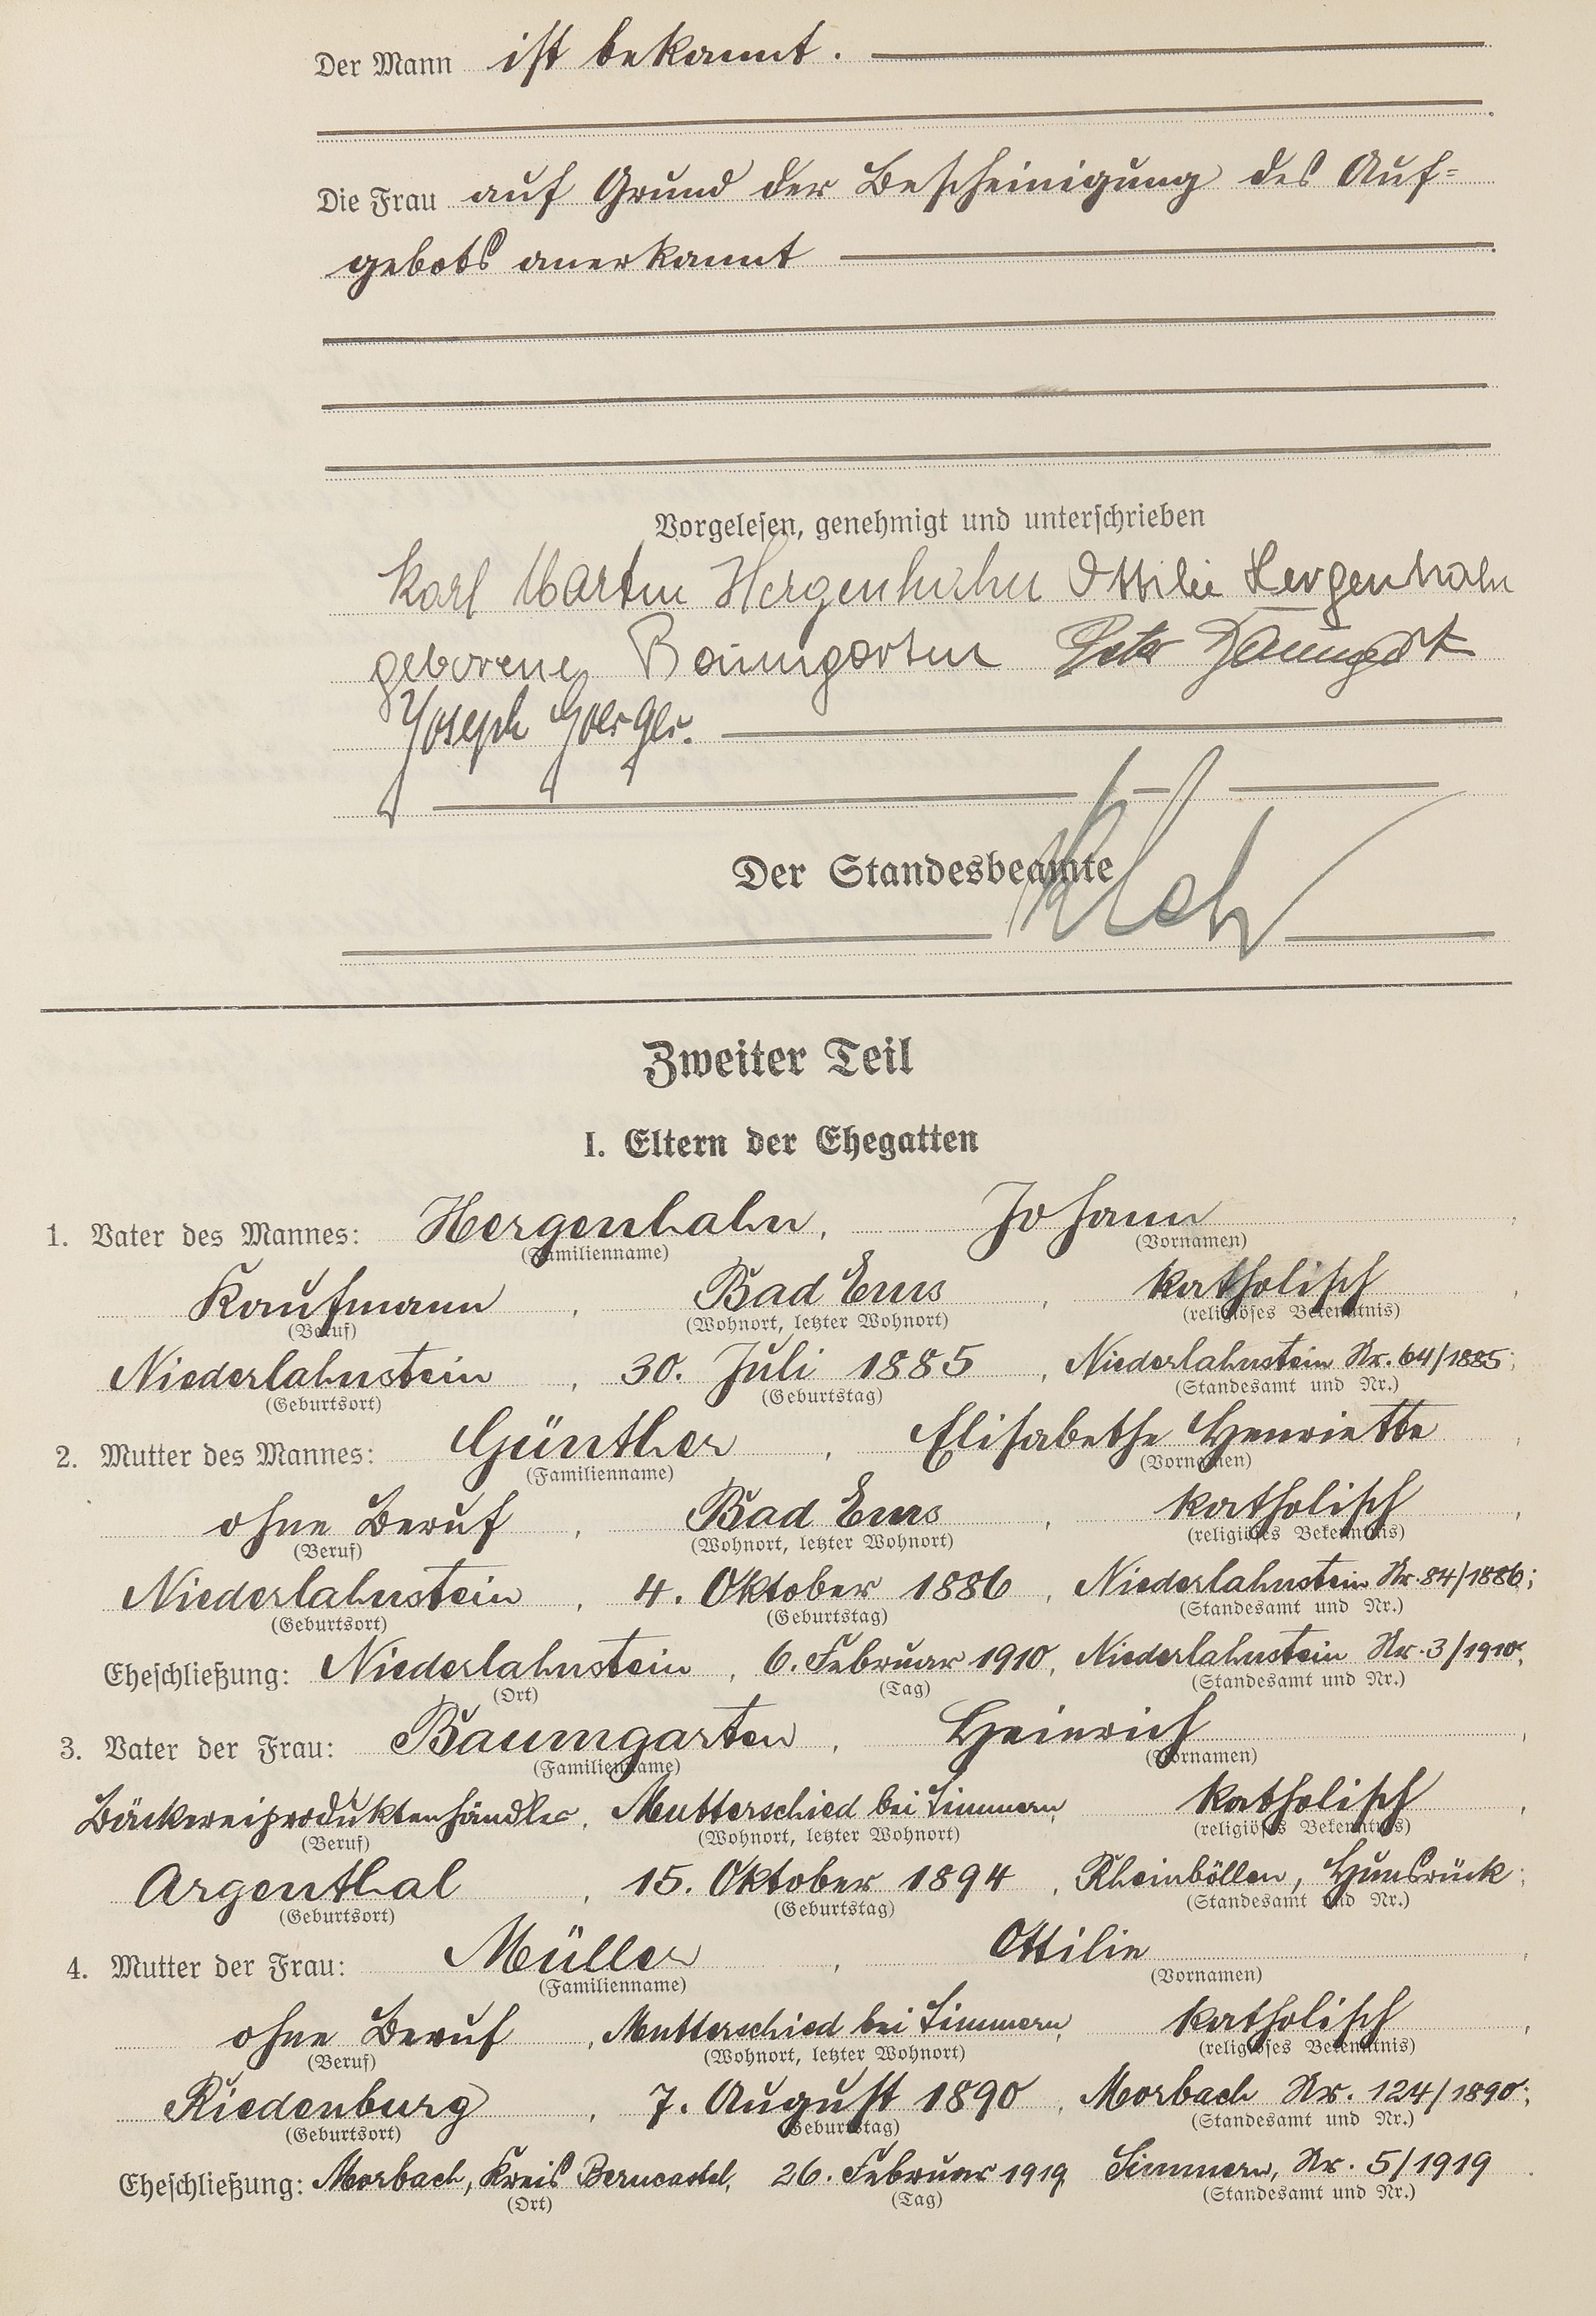 Der Mann ist bekannt.
Die Frau auf Grund der Bescheinigung des Auf=
gebots anerkannt
Vorgelesen, genehmigt und unterschrieben
Karl Martin Hergenhahn Ottilie Hergenhahn
geborene Baumgarten Peter
Joseph
Der Standesbeamte
Zweiter Teil
I. Eltern der Ehegatten
1. Vater des Mannes: Hergenhahn, Johann
(Familienname) (Vornamen)
Kaufmann, Bad Ems, katholisch,
(Beruf) (Wohnort, letzter Wohnort) (religiöses Bekenntnis)
Niederlahnstein, 30. Juli 1885, Niederlahnstein Nr. 64/1885;
(Geburtsort) (Geburtstag) (Standesamt und Nr.)
2. Mutter des Mannes: Günther, Elisabethe Henriette,
(Familienname) (Vornamen)
ohne Beruf, Bad Ems, katholisch,
(Beruf) (Wohnort, letzter Wohnort) (religiöses Bekenntnis)
Niederlahnstein, 4. Oktober 1886, Niederlahnstein Nr. 84/1886;
(Geburtsort) (Geburtstag) (Standesamt und Nr.)
Eheschließung: Niederlahnstein, 6. Februar 1910, Niederlahnstein Nr. 3/1910;
(Ort) (Tag) (Standesamt und Nr.)
3. Vater der Frau: Baumgarten, Heinrich,
(Familienname) (Vornamen)
Bäckereiproduktenhändler, Mutterschied bei Simmern, katholisch,
(Beruf) (Wohnort, letzter Wohnort) (religiöses Bekenntnis)
Argenthal, 15. Oktober 1894, Rheinböllen, Hunsrück;
(Geburtsort) (Geburtstag) (Standesamt und Nr.)
4. Mutter der Frau: Müller, Ottilie,
(Familienname) (Vornamen)
ohne Beruf, Mutterschied bei Simmern, katholisch,
(Beruf) (Wohnort, letzter Wohnort) (religiöses Bekenntnis)
Riedenburg, 7. August 1890, Morbach Nr. 124/1890;
(Geburtsort) (Geburtstag) (Standesamt und Nr.)
Eheschließung: Morbach, Kreis Berncastel, 26. Februar 1919, Simmern, Nr. 5/1919.
(Ort) (Tag) (Standesamt und Nr.)